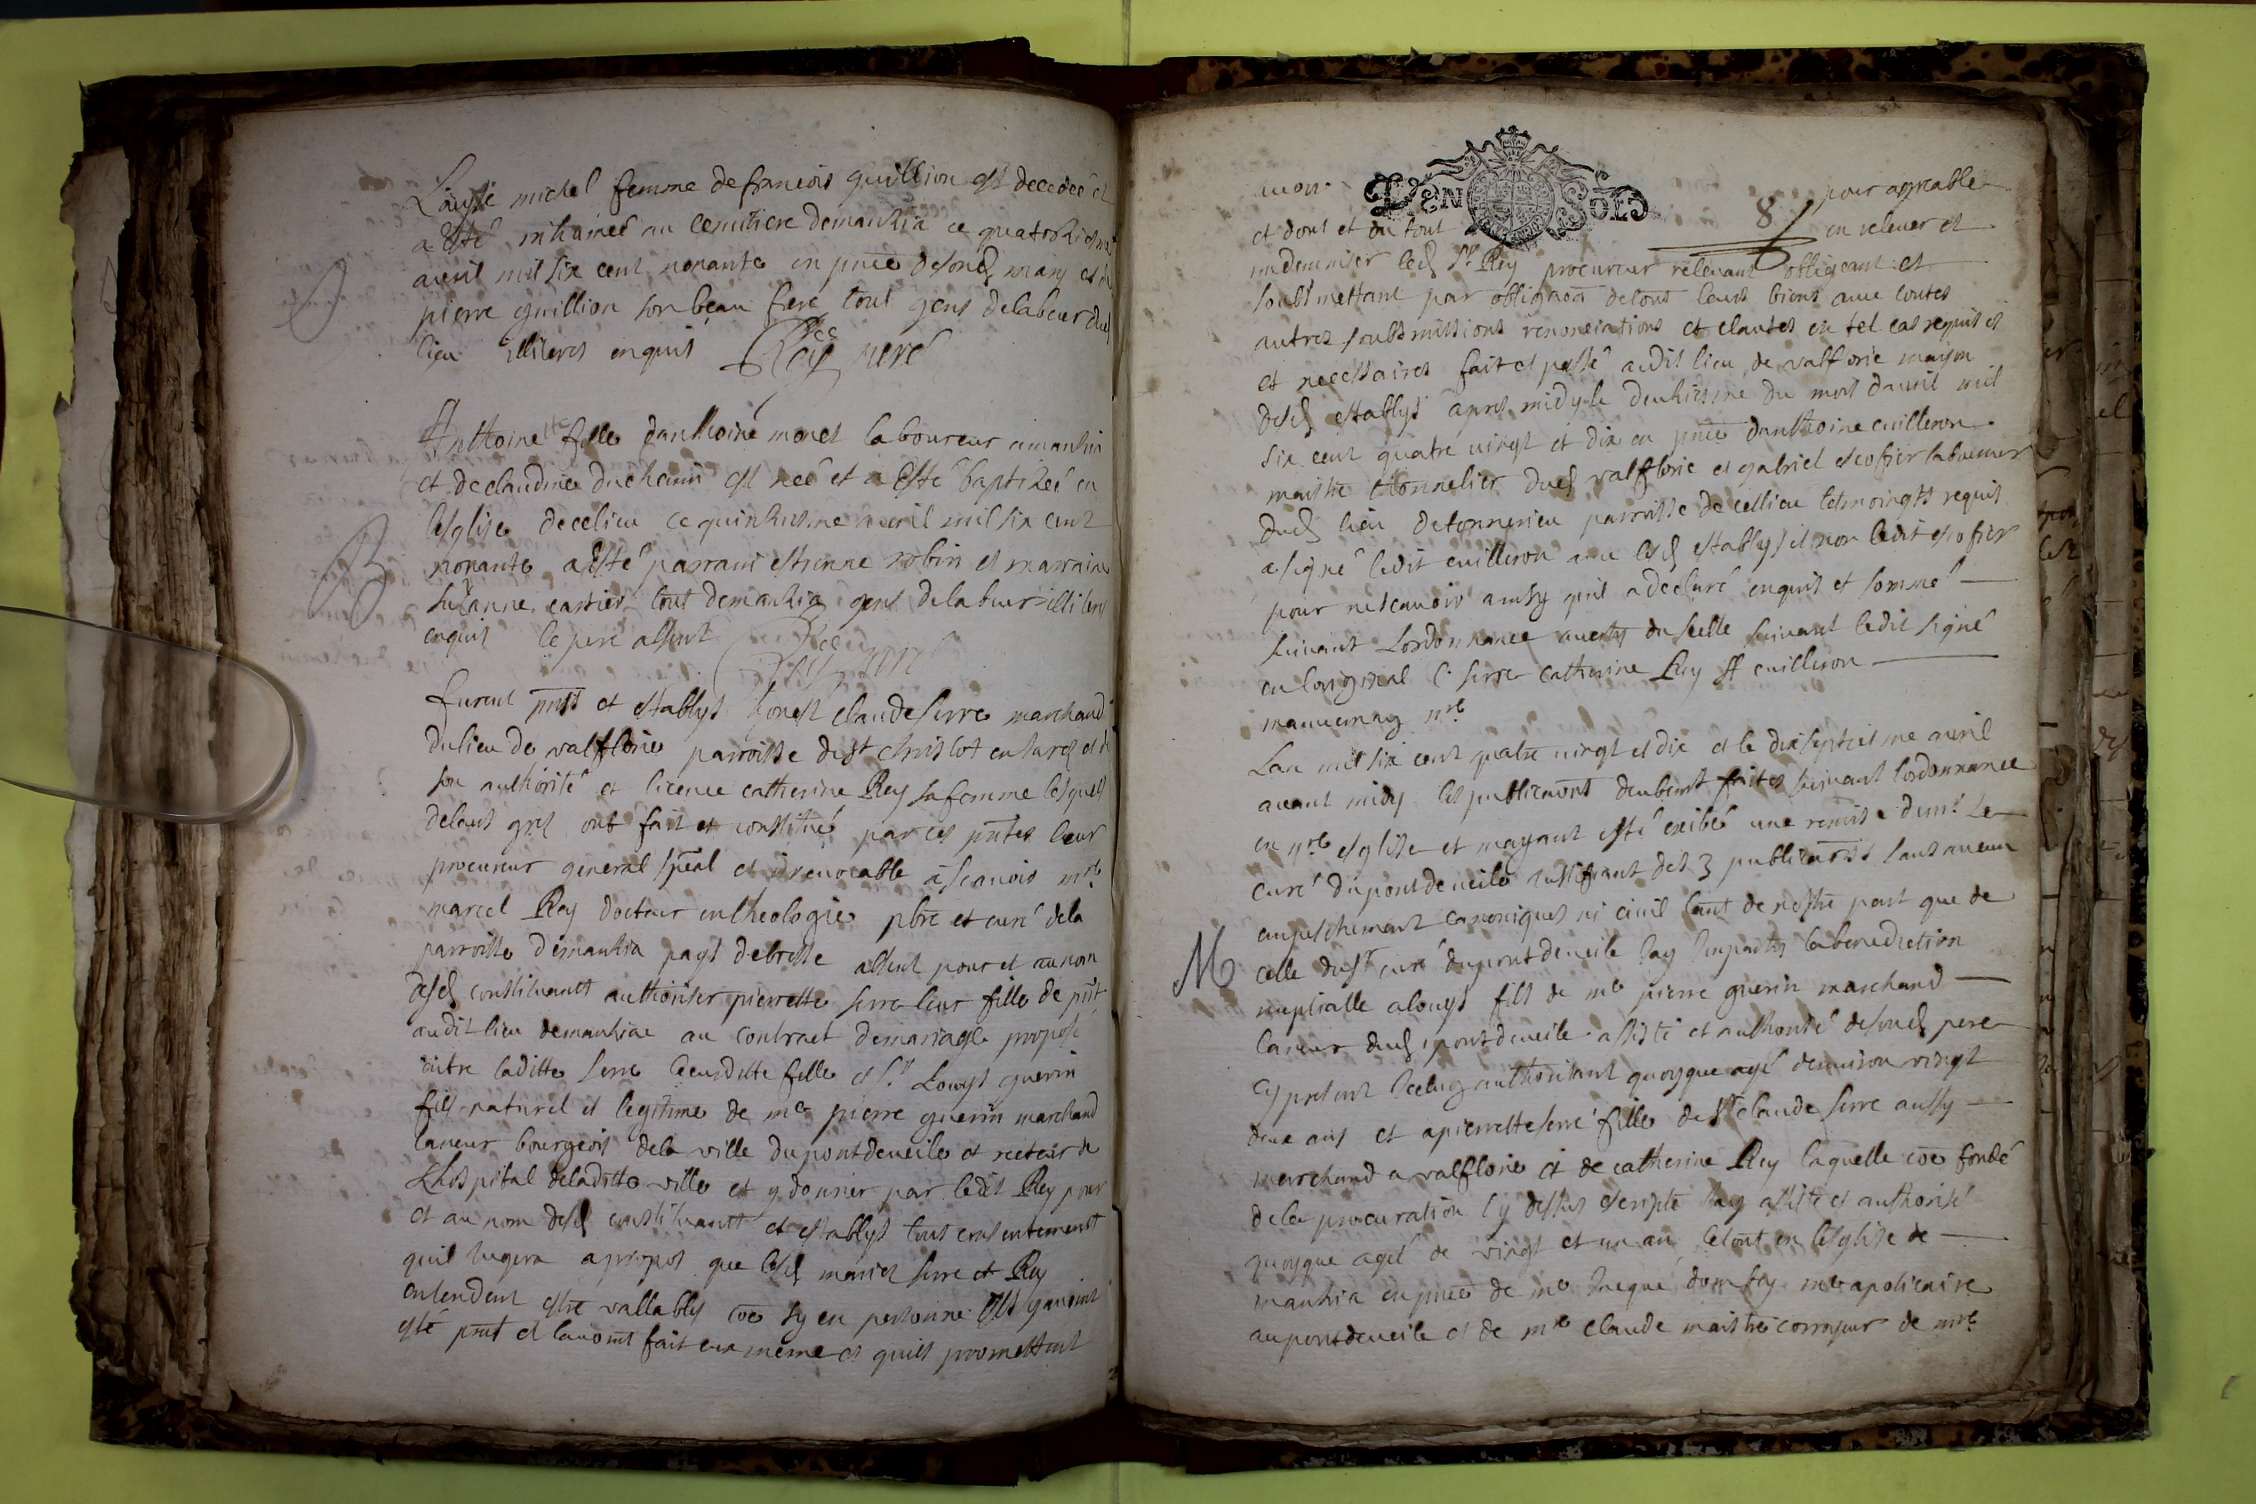 Louyse michel femme de francois guillion est decedee et
a esté inhumée au cemitiere demanhia ce quatorhiesme
avril mil six cent nonante en pnce desond mary et de
pierre guillion son beau frere tout gens delabeur dud
lieu illiteres enquis Rey curé
Anthoinette fille danthoine monet laboureur amanhia
et declaudine duchemin est née et a esté baptizée en
lesglise decelieu ce quinhiesme avril mil six cent
nonante a esté parrain estienne robin et marraine
suzanne cartier tout demanhia gens delabeur illiteres
enquis le pere absent Rey curé
furent pnts et establys honest claude serre marchand
dulieu de valflorie parroisse de st christot en jarez et de
son authorité et licence catherine Rey sa femme lesquels
deleurs grez ont fait et constitué par ces pntes leur
procureur general speal et irrevocable ascavoir mre
marcel Rey docteur en theologie pbre et curé dela
parroisse demanhia pays debresse absent pour et au nom
desd constituants authoriser pierrette serre leur fille de pnt
audit lieu demanhia au contract demariage proposé
entre laditte serre leurditte fille et sr Louys guerin
fils naturel et legitime de me pierre guerin marchand
taneur bourgeois dela ville dupontdeveile et recteur de
Lhospital deladitte ville et y donner par ledit Rey pour
et au nom desd constituants et establys tous consentements
quil jugera apropos que lesd mariez serre et Rey
entendent estre vallables coe sy en personne ils y avoint
esté pnts et lavoint fait eux meme et quils promettent
avoir pour agreable
DEN SOLS
8
et dont et du tout en relever et
indemniser led Sr Rey procureur relevant obligeant et
soubsmettant par obligaon detous leurs biens avec toutes
autres soubsmissions renonciations et clauses en tel cas requises
et necessaires fait et passé audit lieu de valflorie maison
desd establys apres midy le deuhiesme du mois davril mil
six cent quatre vingt et dix en pnce danthoine cuilleron
maistre thonnelier dud valflorie et gabriel escofier laboureur
dud lieu detonnerieu parroisse de cellieu tesmoingts requis
a signé ledit cuilleron avec lesd establys et non ledit escofier
pour nescavoir ainsy quil a declaré enquis et sommé
suivant Lordonnance averty du seelle suivant ledit signé
en loriginal C serre catherine Rey A cuilleron
mauvernay nre
Lan mil six cent quatre vingt et dix et le dixseptiesme avril
avant midy les publications deubment faites suivant lordonnance
en nre esglise et mayant esté exibée une remise de mr le
curé dupontdeveile justifiant des 3 publications sans aucun
empeschement canoniques ni civil tant de nostre part que de
celle dud sr curé dupontdeveile jay impartis la benediction
M
nuptialle alouys fils de me pierre guerin marchand
taneur dud pontdeveile assisté et authorisé desond pere
cy present iceluy authorisant quoyque agé denviron vingt
deux ans et apierrette serre fille de Sr claude serre aussy
marchand a valflorie et de catherine Rey laquelle coe fondé
dela procuration cy dessus escripte jay assisté et authorisé
quoyque agée de vingt et un an letout en lesglise de
manhia en pnce de me jaque dombey me apoticaire
aupontdeveile et de me claude maistre corroyeur de mre